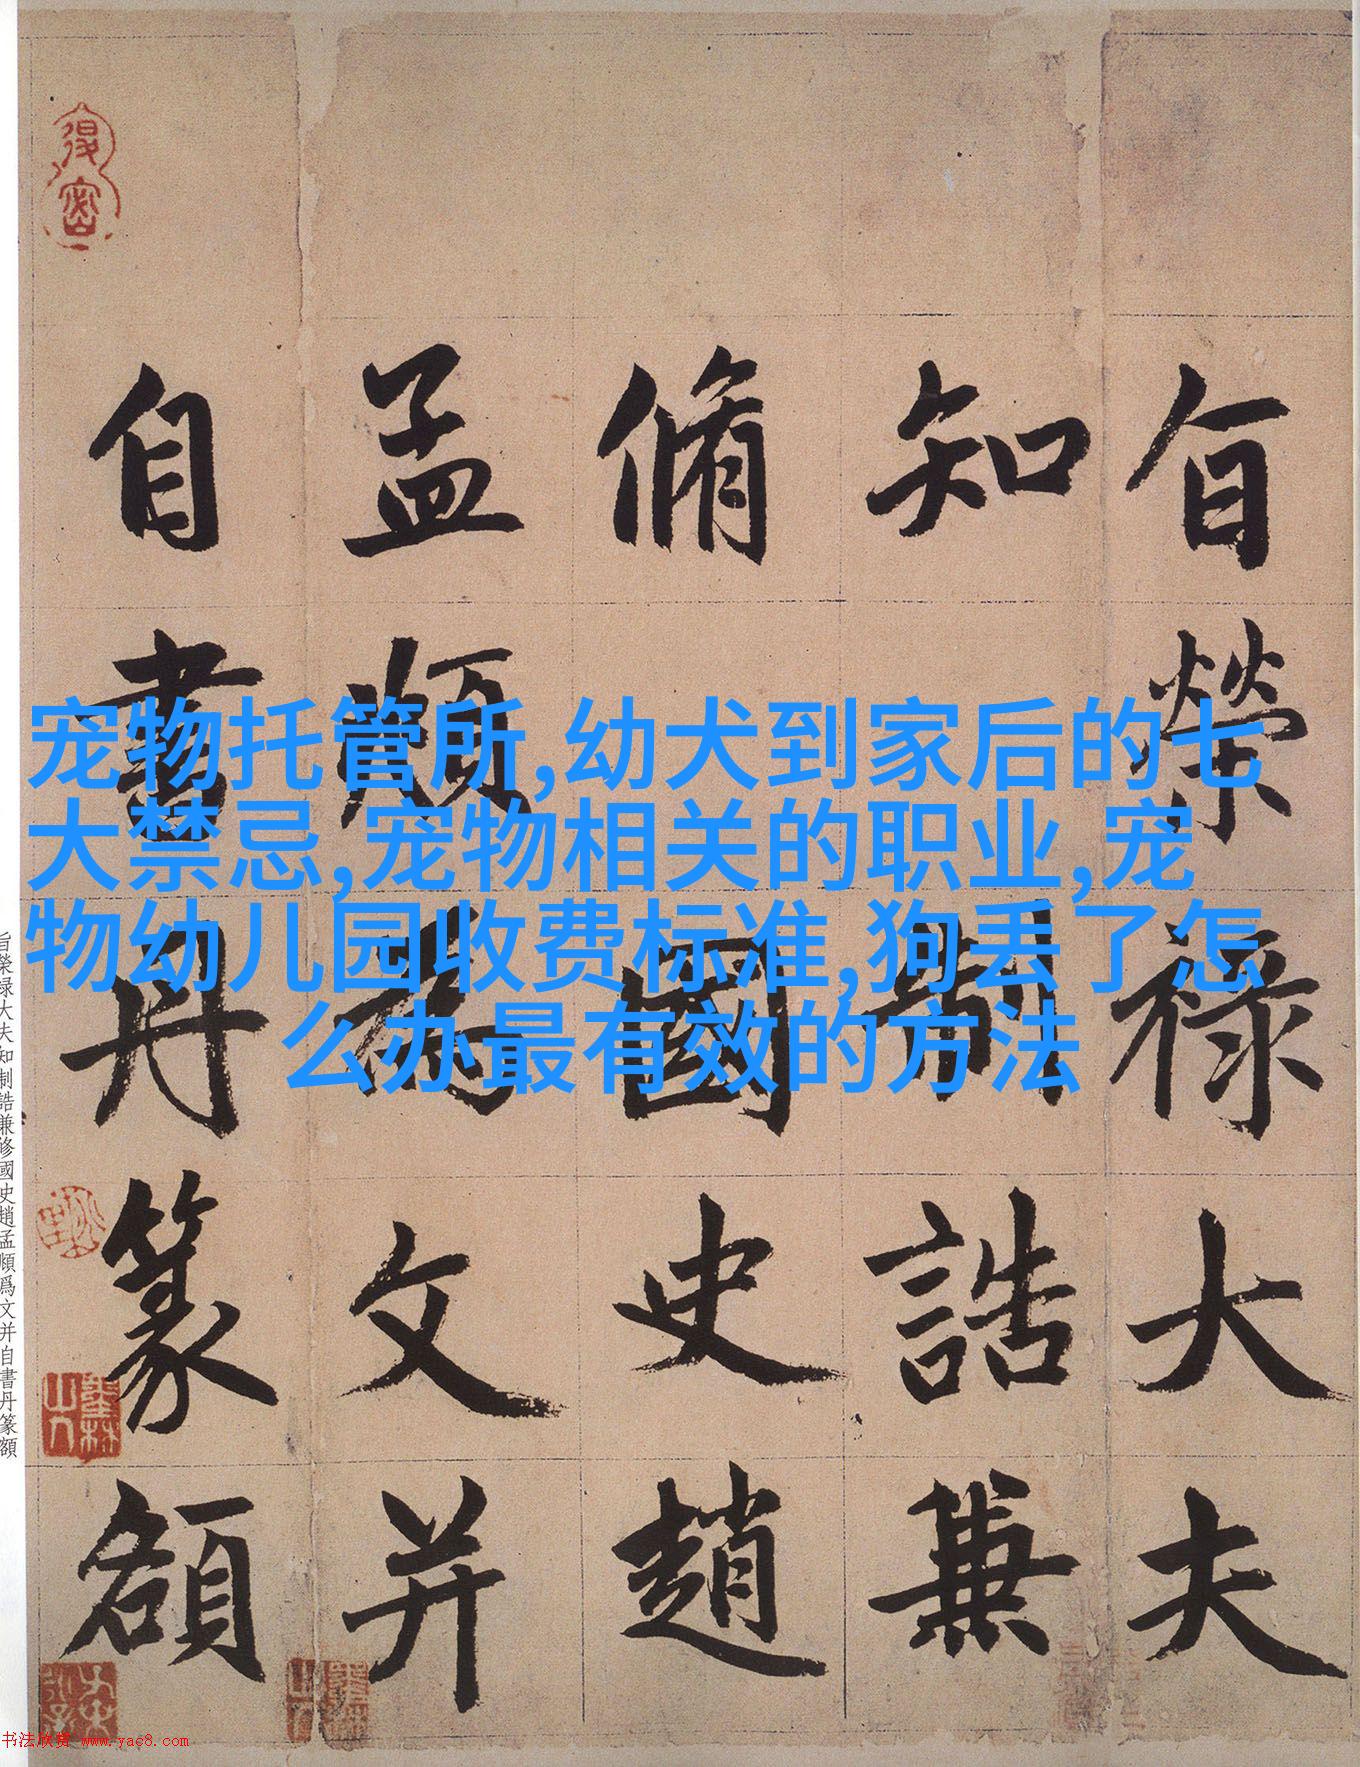 旨榮祿大夫
知制誥兼
脩國史趙
孟頫為文并
自書丹篆額
宠物托管所,幼犬到家后的七
大禁忌,宠物相关的职业,宠
物幼儿园收费标准,狗丢了怎
么办最有效的方法
旨榮禄大夫知制誥兼修國史趙孟頫爲文并自書丹篆額
书法欣赏 www.yac8.com